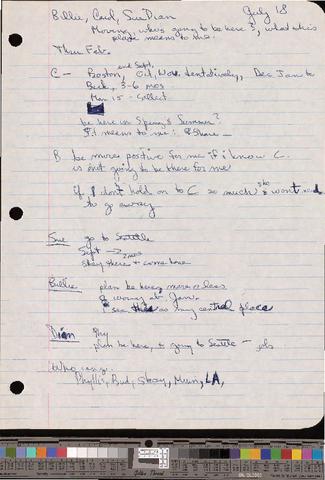 Billie, Carol, Sue Dian July 18
Moving, who's going to be here &, what this
place means to me.
Thru Feb.
end Sept.
C — Boston, Oct, Nov. tentatively, Dec Jan to
Beck, 3-6 mos
Mar 15 - Collect
be here in Spring & Summer?
it means to me: Share —
B be more positive for me if I know C.
is not going to be there for me
if I don't hold on to C so much she won't need
to go away
Sue go to Seattle
Sept → 2 mos
stay there & come here
Billie plan be here, more or less
worry at Jan.
I see this as my central place
Dian Phy
plan be here, & going to Seattle — job
Who caring:
Phyllis, Bud, LA,